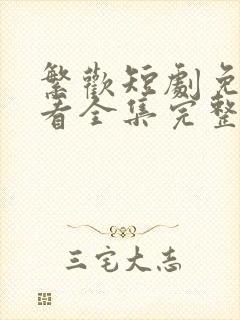 繁歡短劇免
看全集完整
三宅大志